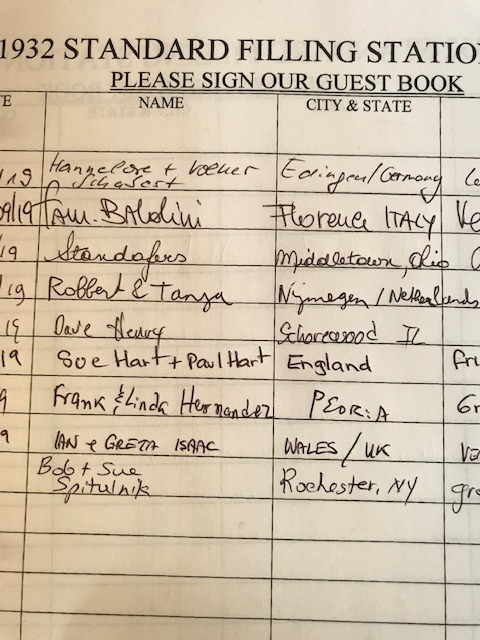 1932 STANDARD FILLING STATION
PLEASE SIGN OUR GUEST BOOK
NAME CITY & STATE
19 Hannelore + Volker Edingen/Germany
09/19 Fam. Baldini Florence ITALY
19 Standafers Middletown, Ohio
19 Robbert & Tanja Nijmegen / Netherlands
19 Dave Henry Shorewood IL
19 Sue Hart + Paul Hart England
9 Frank & Linda Hernandez PEORiA
9 IAN + GRETA ISAAC WALES / UK
Bob + Sue
Spitulnik Rochester, NY